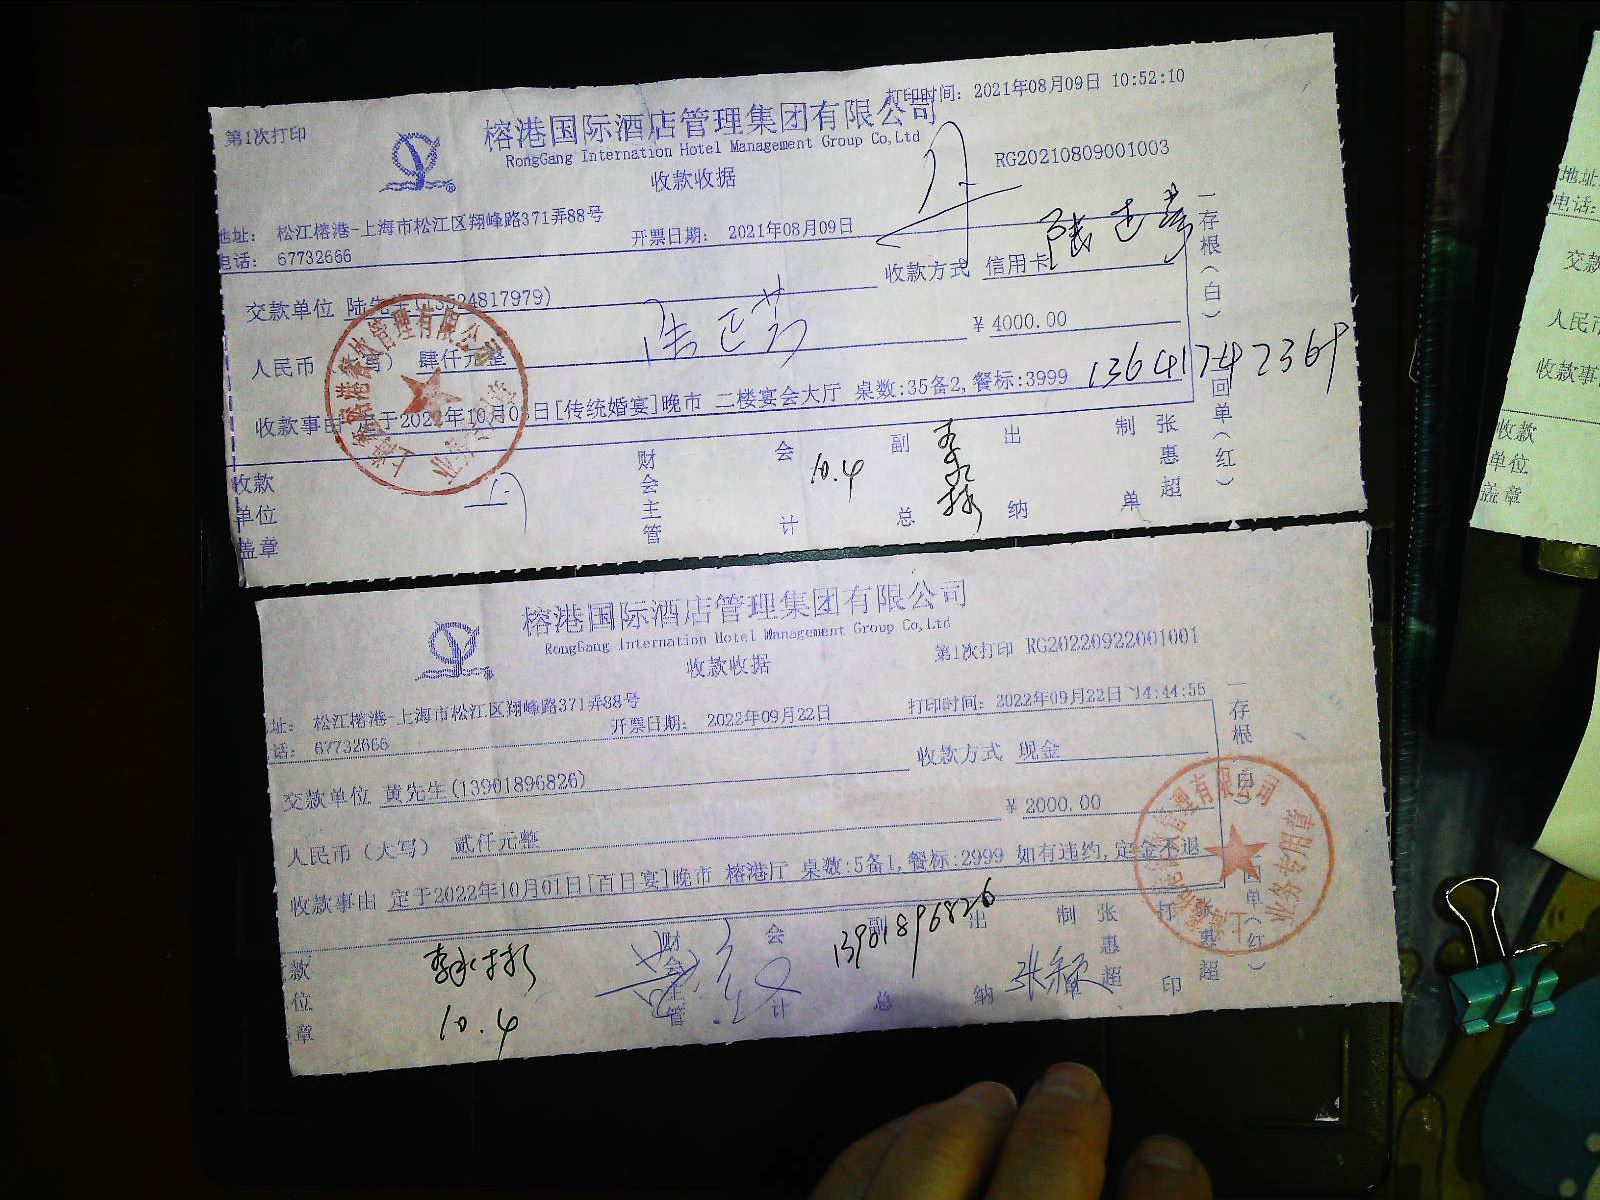 第1次打印
打印时间: 2021年08月09日 10:52:10
榕港国际酒店管理集团有限公司
RongGang Internation Hotel Management Group Co,Ltd
收款收据
RG20210809001003
地址: 松江榕港-上海市松江区翔峰路371弄88号
电话: 67732666
开票日期: 2021年08月09日
收款方式 信用卡
交款单位 陆先生(13524817979)
¥ 4000.00
人民币(大写) 肆仟元整
13641747369
收款事由 定于2022年10月0 日[传统婚宴]晚市 二楼宴会大厅 桌数:35备2,餐标:3999
收款单位盖章
财会主管
会计
10.4
副总
出纳
制单
张惠超
一存根(白)
回单(红)
榕港国际酒店管理集团有限公司
RongGang Internation Hotel Management Group Co,Ltd
收款收据
第1次打印 RG20220922001001
址: 松江榕港-上海市松江区翔峰路371弄88号
话: 67732666
开票日期: 2022年09月22日
打印时间: 2022年09月22日 14:44:55
收款方式 现金
交款单位 黄先生(13901896826)
¥ 2000.00
人民币(大写) 贰仟元整
收款事由 定于2022年10月01日[百日宴]晚市 榕港厅 桌数:5备1,餐标:2999 如有违约,定金不退
款位章
10.4
财会主管
会计
13901896826
副总
出纳
张颖
制单
张惠超
打印
张惠超
一存根(白)
回单(红)
业务专用章
地址
电话:
交款
人民币
收款事
收款
单位
盖章